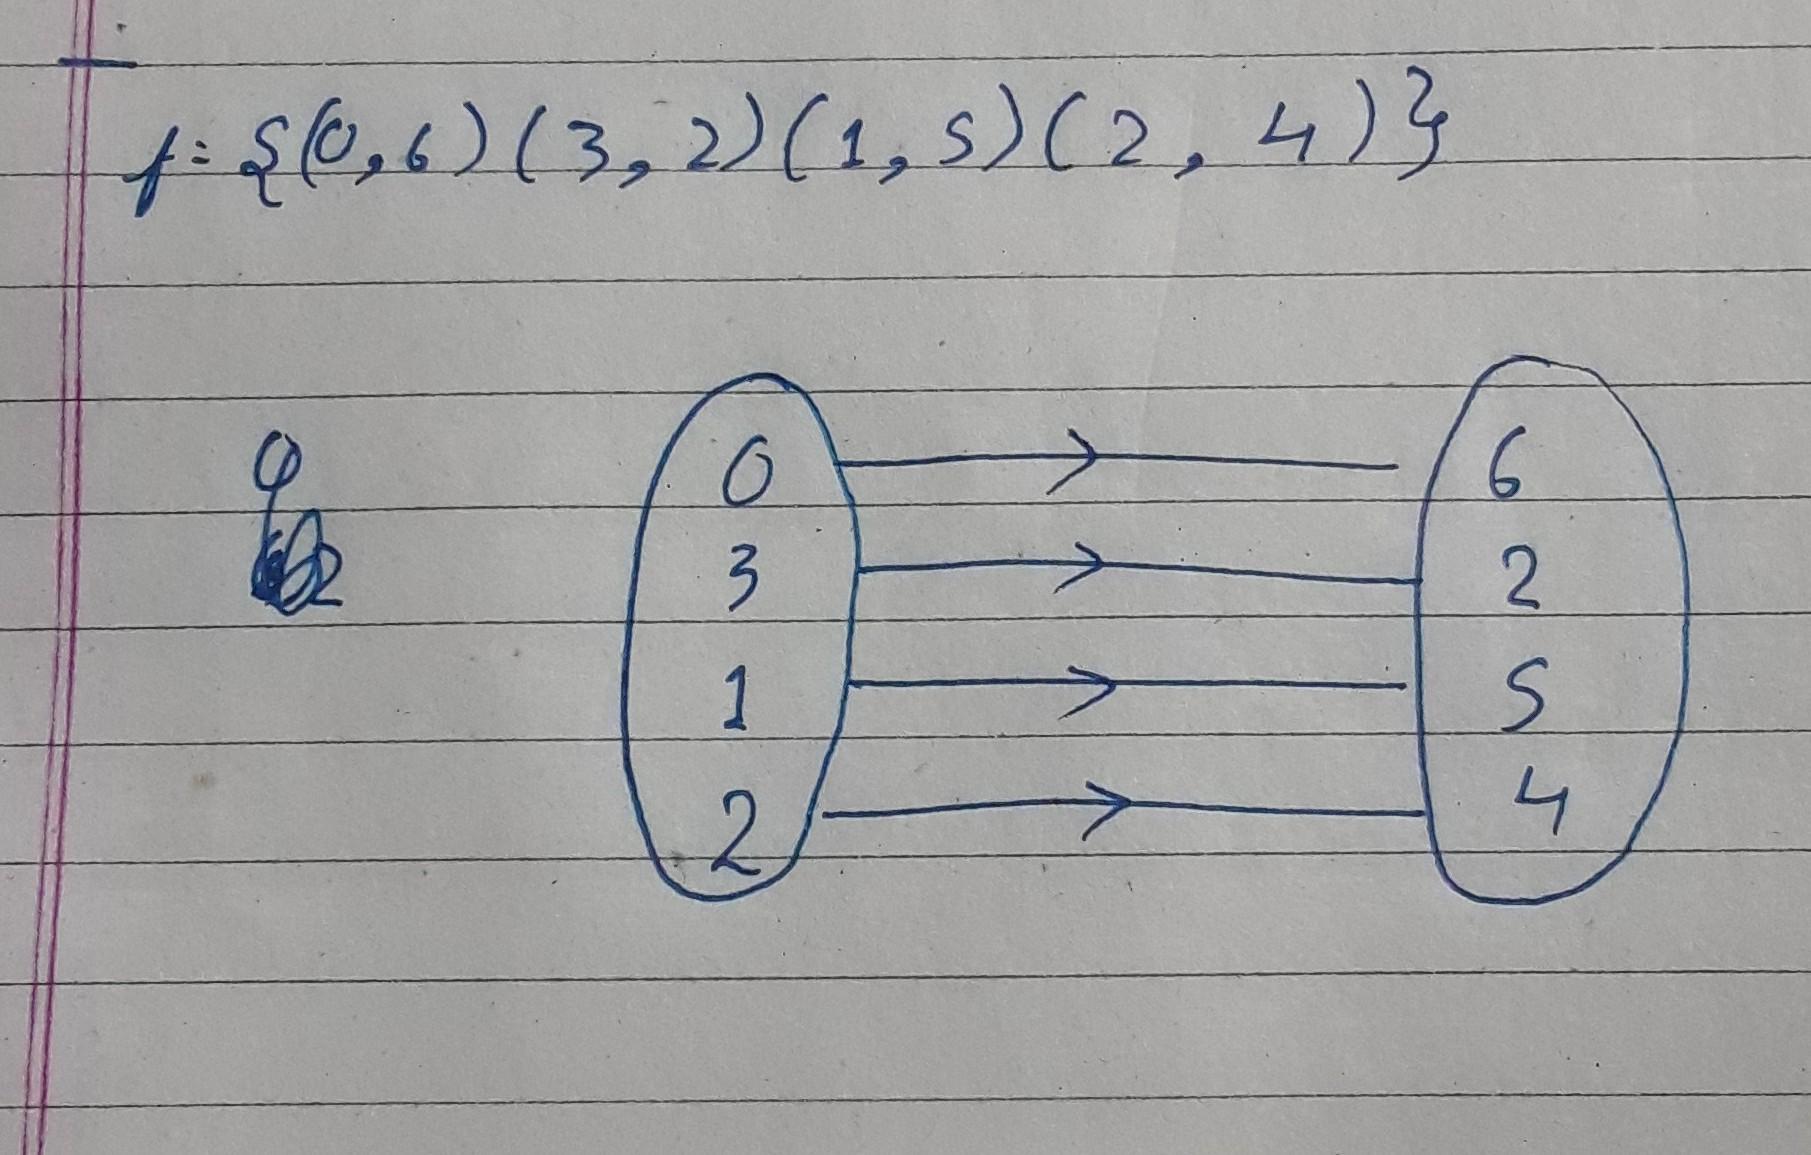 f = {(0,6)(3,2)(1,5)(2,4)}
0 6
3 2
1 5
2 4